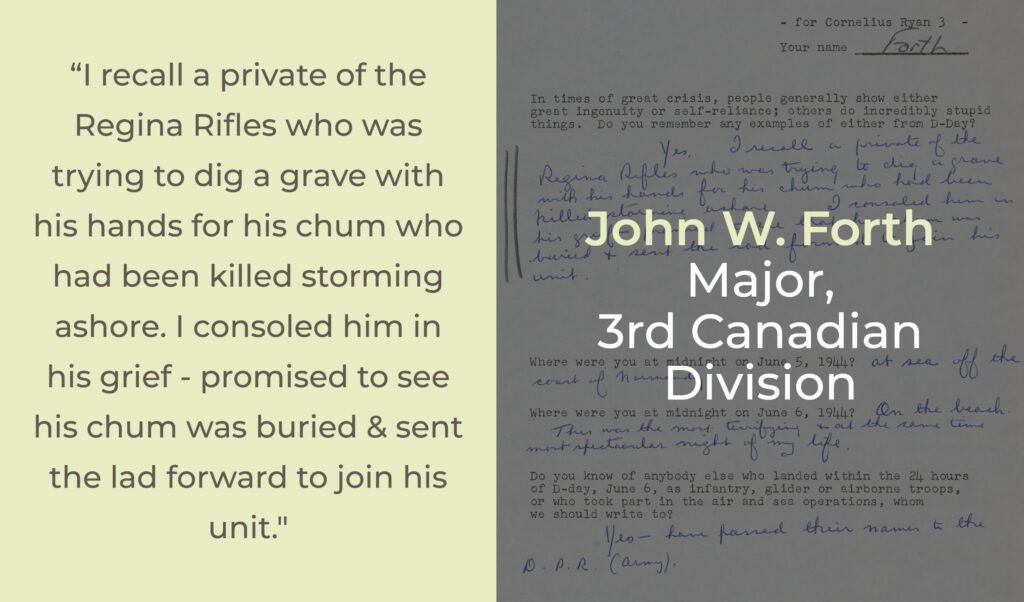 “I recall a private of the
Regina Rifles who was
trying to dig a grave with
his hands for his chum who
had been killed storming
ashore. I consoled him in
his grief - promised to see
his chum was buried & sent
the lad forward to join his
unit."
- for Cornelius Ryan 3 -
Your name Forth
In times of great crisis, people generally show either
great ingenuity or self-reliance; others do incredibly stupid
things. Do you remember any examples of either from D-Day?
Yes, I recall a private of the
Regina Rifles who was trying to dig a grave
with his hands for his chum who had been
killed storming ashore. I consoled him in
his grief was
buried & sent the lad forward to join his
unit.
John W. Forth
Major,
3rd Canadian
Division
Where were you at midnight on June 5, 1944? at sea off the
coast of Normandy
Where were you at midnight on June 6, 1944? On the beach.
This was the most terrifying & at the same time
most spectacular night of my life.
Do you know of anybody else who landed within the 24 hours
of D-day, June 6, as infantry, glider or airborne troops,
or who took part in the air and sea operations, whom
we should write to?
Yes - have passed their names to the
D.P.R. (Army).